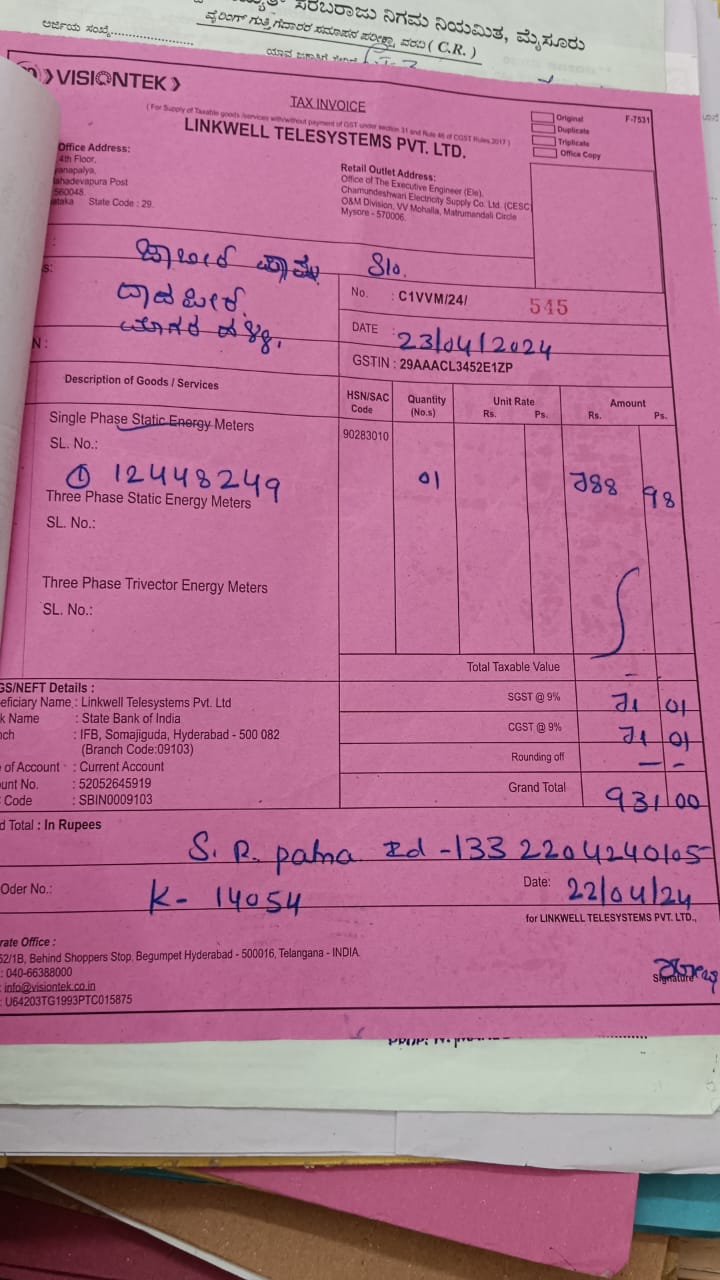 ಸರಬರಾಜು ನಿಗಮ ನಿಯಮಿತ, ಮೈಸೂರು
ವೈರಿಂಗ್ ಗುತ್ತಿಗೆದಾರರ ಸಮಾಪನ ಪರೀಕ್ಷಾ ವರದಿ ( C.R. )
ಅರ್ಜಿಯ ಸಂಖ್ಯೆ
VISIONTEK
TAX INVOICE
( For Supply of Taxable goods /services with/without payment of GST under section 31 and Rule 46 of CGST Rules,2017 )
LINKWELL TELESYSTEMS PVT. LTD.
Original
Duplicate
Triplicate
Office Copy
F-7531
Office Address:
4th Floor,
anapalya,
ahadevapura Post
560048.
ataka State Code : 29.
Retail Outlet Address:
Office of The Executive Engineer (Ele),
Chamundeshwari Electricity Supply Co. Ltd. (CESC
O&M Division, VV Mohalla, Matrumandali Circle
Mysore - 570006.
S/o.
No. : C1VVM/24/ 545
DATE : 23/04/2024
GSTIN : 29AAACL3452E1ZP
N :
Description of Goods / Services
HSN/SAC Code
Quantity (No.s)
Unit Rate
Rs. Ps.
Amount
Rs. Ps.
Single Phase Static Energy Meters
90283010
SL. No.:
① 12448249 01 788 98
Three Phase Static Energy Meters
SL. No.:
Three Phase Trivector Energy Meters
SL. No.:
Total Taxable Value -
GS/NEFT Details :
SGST @ 9% 71 01
eficiary Name : Linkwell Telesystems Pvt. Ltd
k Name : State Bank of India
CGST @ 9% 71 01
nch : IFB, Somajiguda, Hyderabad - 500 082
(Branch Code:09103)
Rounding off — -
of Account : Current Account
unt No. : 52052645919
Code : SBIN0009103
Grand Total 931 00
d Total : In Rupees
S. R. patna Rd -133 2204240105
Oder No.: K- 14054
Date: 22/04/24
for LINKWELL TELESYSTEMS PVT. LTD.,
rate Office :
52/1B, Behind Shoppers Stop, Begumpet Hyderabad - 500016, Telangana - INDIA.
: 040-66388000
: info@visiontek.co.in
: U64203TG1993PTC015875
Signature